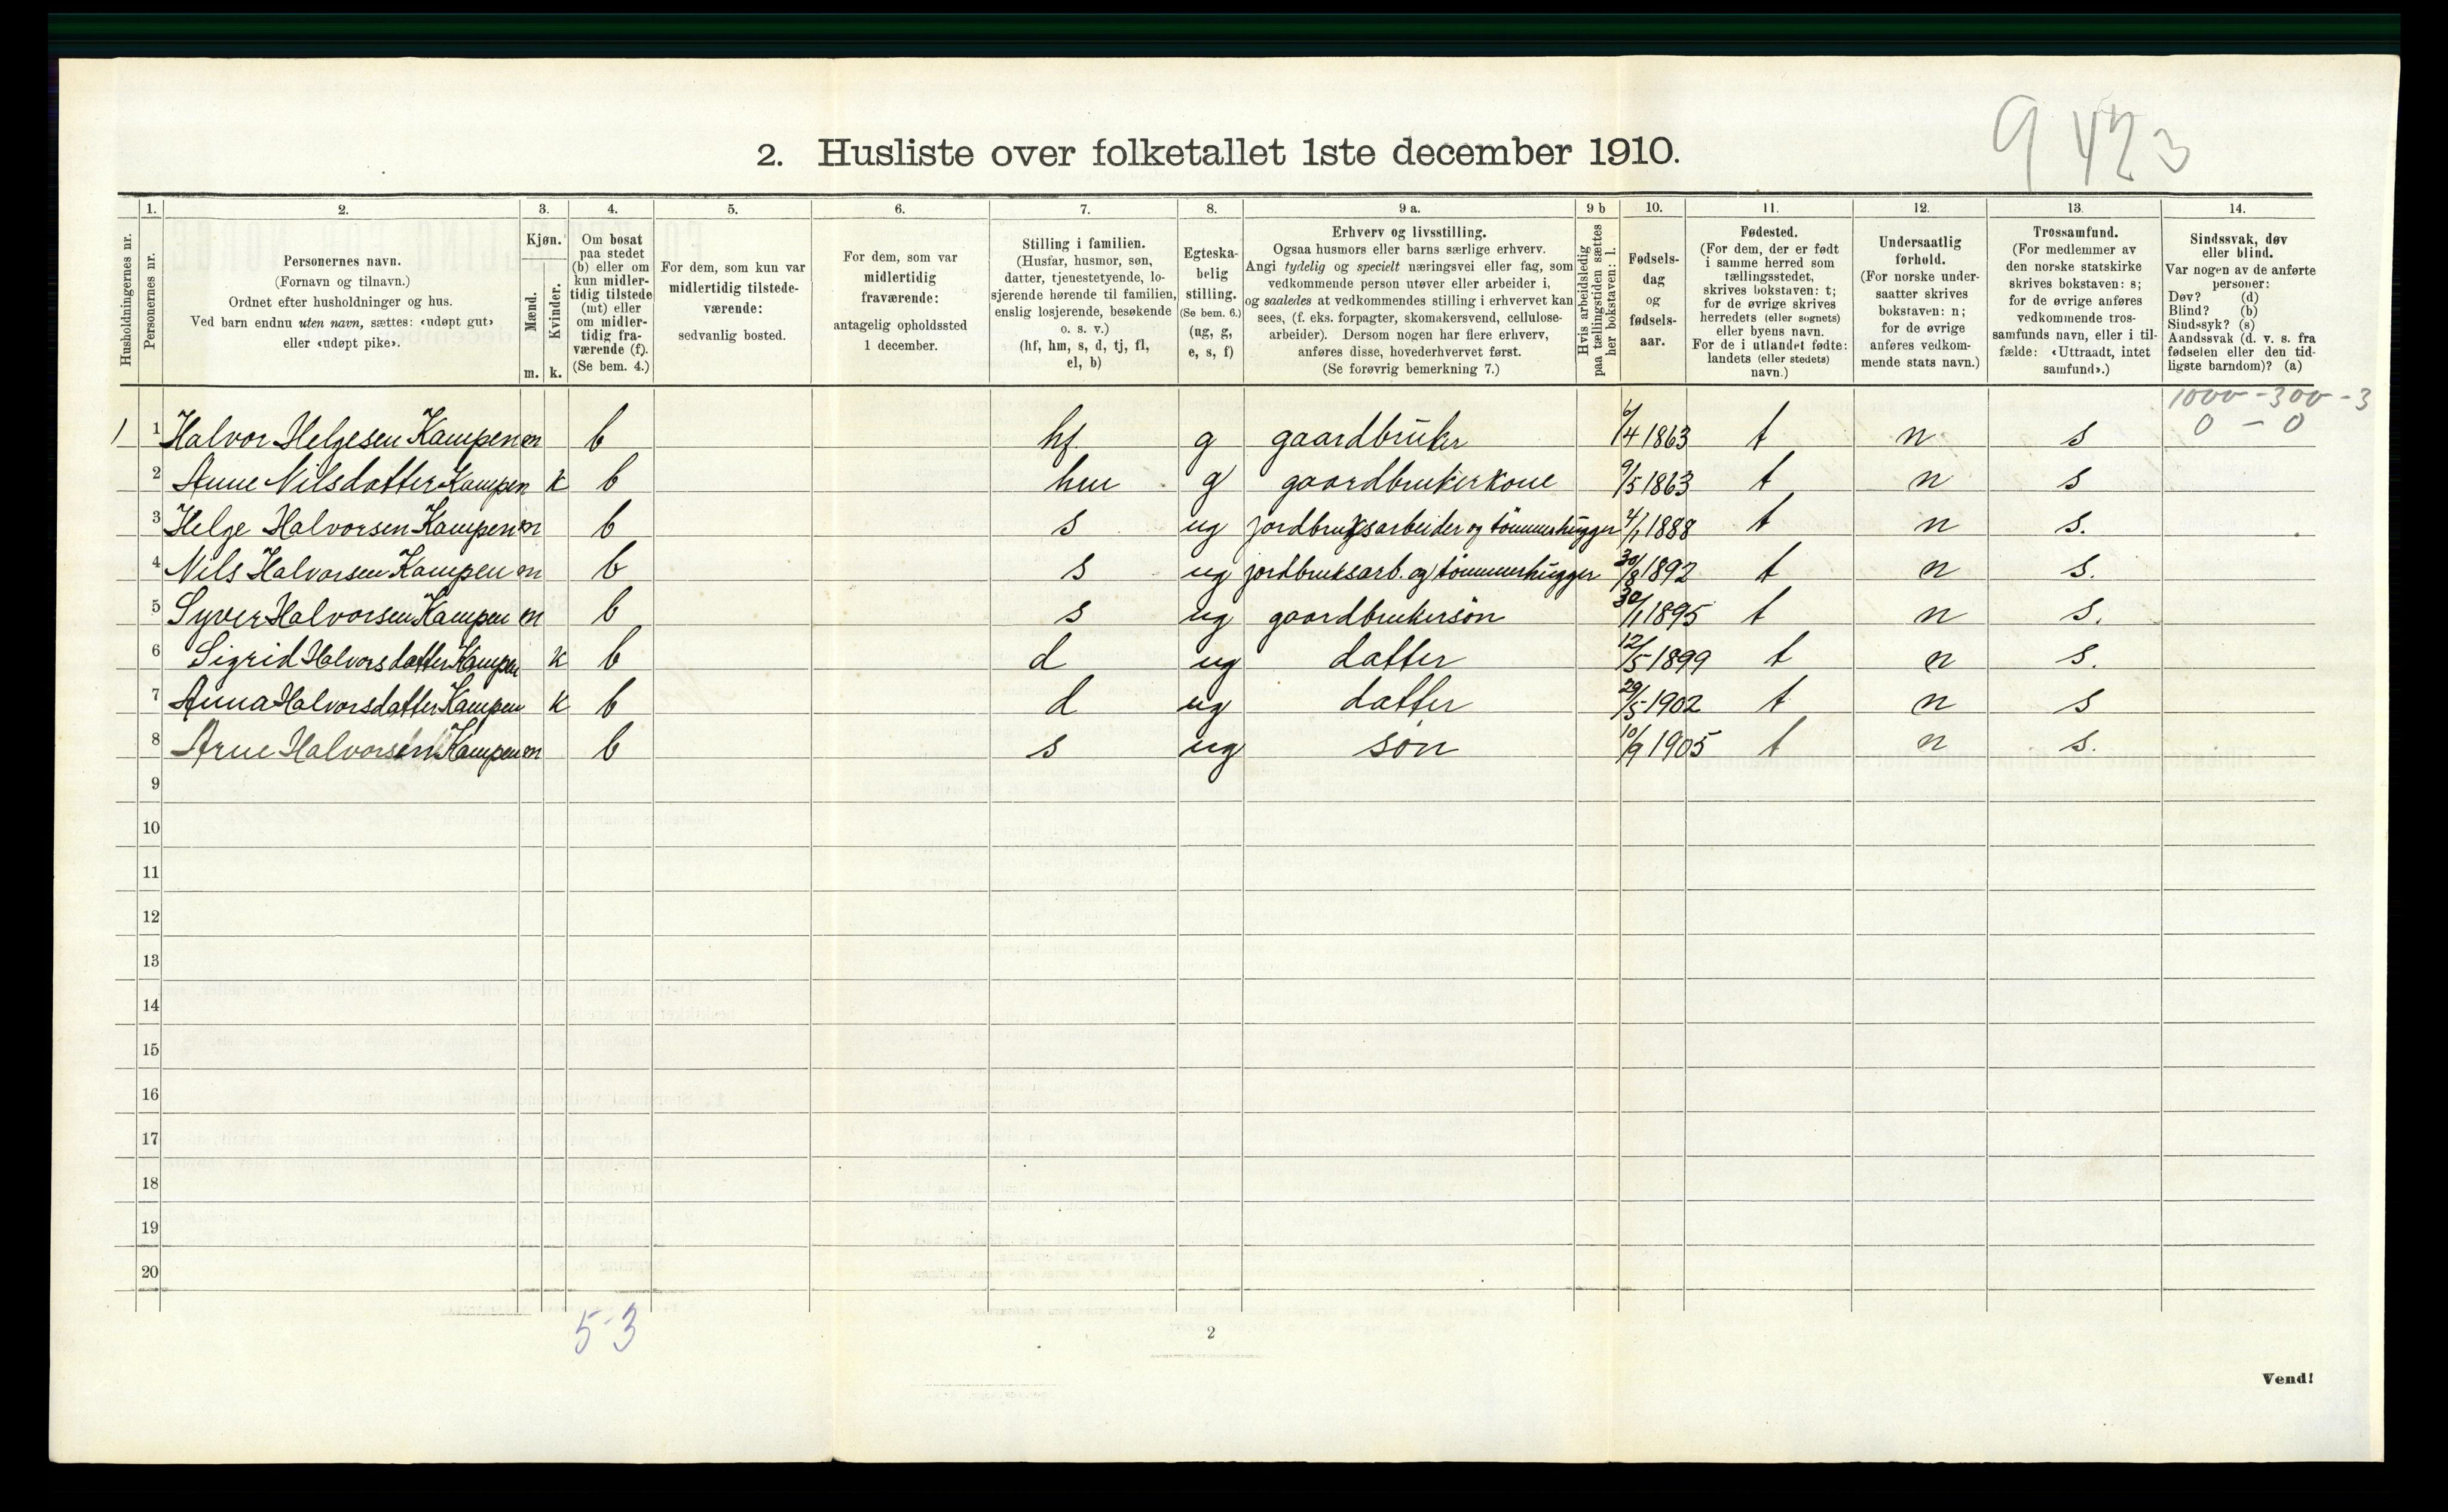 9 423
2. Husliste over folketallet 1ste december 1910.
Husholdningernes nr.
1.
Personernes nr.
2.
Personernes navn.
(Fornavn og tilnavn.)
Ordnet efter husholdninger og hus.
Ved barn endnu uten navn, sættes: «udøpt gut»
eller «udøpt pike».
3.
Kjøn.
Mænd.
Kvinder.
m. k.
4.
Om bosat
paa stedet
(b) eller om
kun midler-
tidig tilstede
(mt) eller
om midler-
tidig fra-
værende (f).
(Se bem. 4.)
5.
For dem, som kun var
midlertidig tilstede-
værende:
sedvanlig bosted.
6.
For dem, som var
midlertidig
fraværende:
antagelig opholdssted
1 december.
7.
Stilling i familien.
(Husfar, husmor, søn,
datter, tjenestetyende, lo-
sjerende hørende til familien,
enslig losjerende, besøkende
o. s. v.)
(hf, hm, s, d, tj, fl,
el, b)
8.
Egteska-
belig
stilling.
(Se bem. 6.)
(ug, g,
e, s, f)
9 a.
Erhverv og livsstilling.
Ogsaa husmors eller barns særlige erhverv.
Angi tydelig og specielt næringsvei eller fag, som
vedkommende person utøver eller arbeider i,
og saaledes at vedkommendes stilling i erhvervet kan
sees, (f. eks. forpagter, skomakersvend, cellulose-
arbeider). Dersom nogen har flere erhverv,
anføres disse, hovederhvervet først.
(Se forøvrig bemerkning 7.)
9 b
Hvis arbeidsledig
paa tællingstiden sættes
her bokstaven: l.
10.
Fødsels-
dag
og
fødsels-
aar.
11.
Fødested.
(For dem, der er født
i samme herred som
tællingsstedet,
skrives bokstaven: t;
for de øvrige skrives
herredets (eller sognets)
eller byens navn.
For de i utlandet fødte:
landets (eller stedets)
navn.)
12.
Undersaatlig
forhold.
(For norske under-
saatter skrives
bokstaven: n;
for de øvrige
anføres vedkom-
mende stats navn.)
13.
Trossamfund.
(For medlemmer av
den norske statskirke
skrives bokstaven: s;
for de øvrige anføres
vedkommende tros-
samfunds navn, eller i til-
fælde: «Uttraadt, intet
samfund».)
14.
Sindssvak, døv
eller blind.
Var nogen av de anførte
personer:
Døv? (d)
Blind? (b)
Sindssyk? (s)
Aandssvak (d. v. s. fra
fødselen eller den tid-
ligste barndom)? (a)
1000 - 300 - 3
0 - 0
1 1 Halvor Helgesen Kampen m b hf g gaardbruker 6/4 1863 t n s
2 Anne Nilsdatter Kampen k b hm g gaardbrukerkone 9/5 1863 t n s
3 Helge Halvorsen Kampen m b s ug jordbruksarbeider og tömmerhugger 4/1 1888 t n s.
4 Nils Halvorsen Kampen m b s ug jordbruksarb. og tömmerhugger 30/8 1892 t n s.
5 Syver Halvorsen Kampen m b s ug gaardbrukersön 30/1 1895 t n s.
6 Sigrid Halvorsdatter Kampen k b d ug datter 12/5 1899 t n s.
7 Anna Halvorsdatter Kampen k b d ug datter 29/5 1902 t n s
8 Arne Halvorsen Kampen m b s ug sön 10/9 1905 t n s.
9
10
11
12
13
14
15
16
17
18
19
20
5-3
2
Vend!